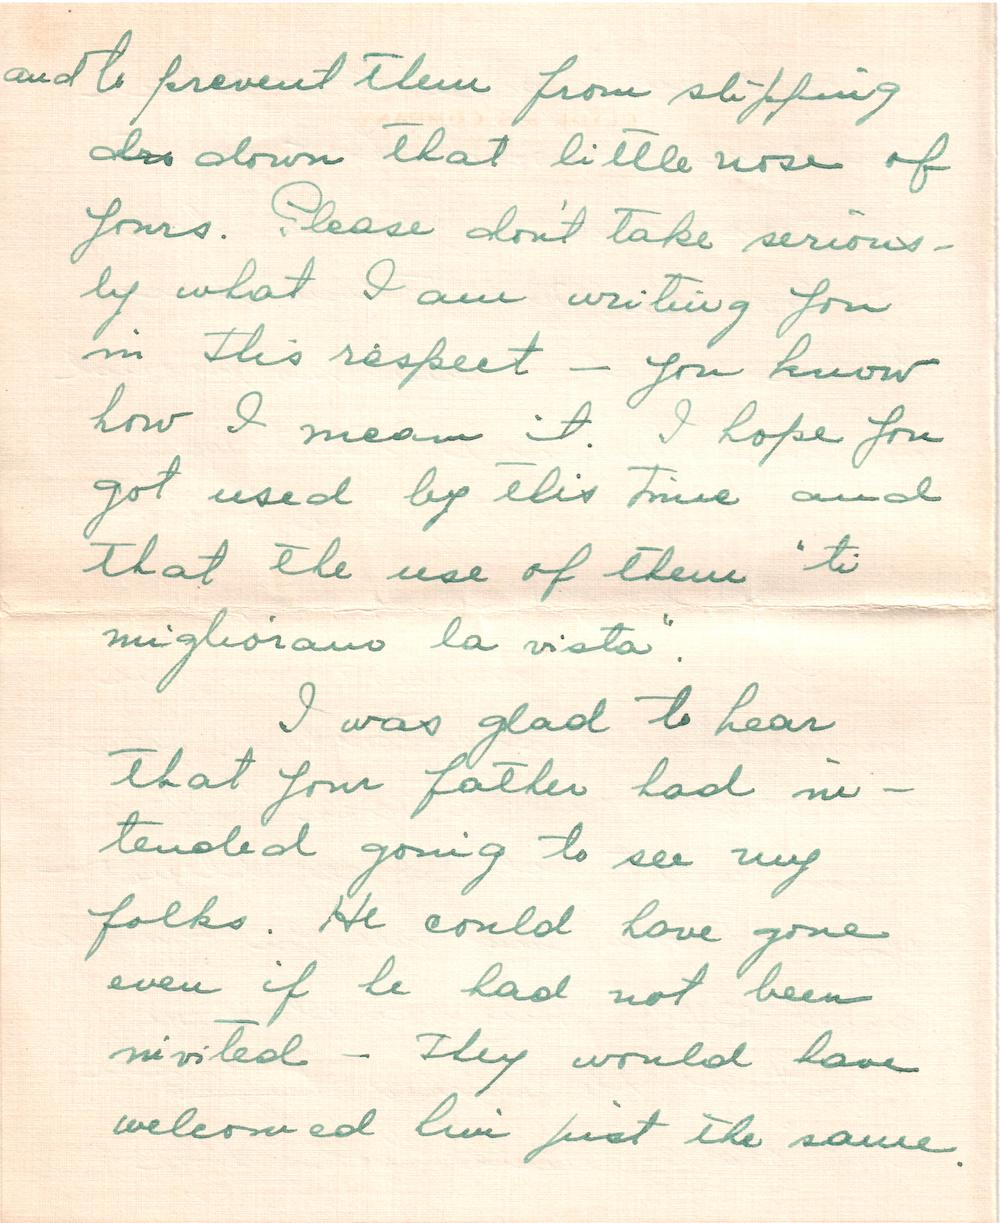 and to prevent them from slipping
dro down that little nose of
yours. Please don't take serious-
ly what I am writing you
in this respect - you know
how I mean it. I hope you
got used by this time and
that the use of them "ti
migliorano la vista".
I was glad to hear
that your father had in-
tended going to see my
folks. He could have gone
even if he had not been
invited - They would have
welcomed him just the same.